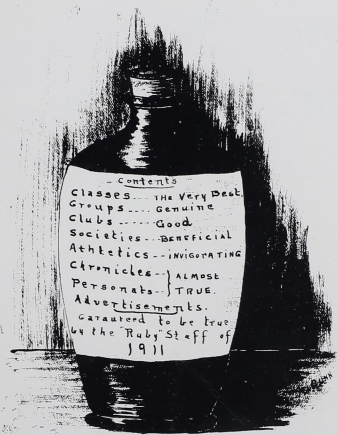 Contents
Classes ---- The Very Best.
Groups ---- Genuine
Clubs ----- Good
Societies --- Beneficial
Athletics -- Invigorating
Chronicles --} Almost
Personals --} True.
Advertisements.
Garauteed to be true
by the "Ruby" Staff of
1911